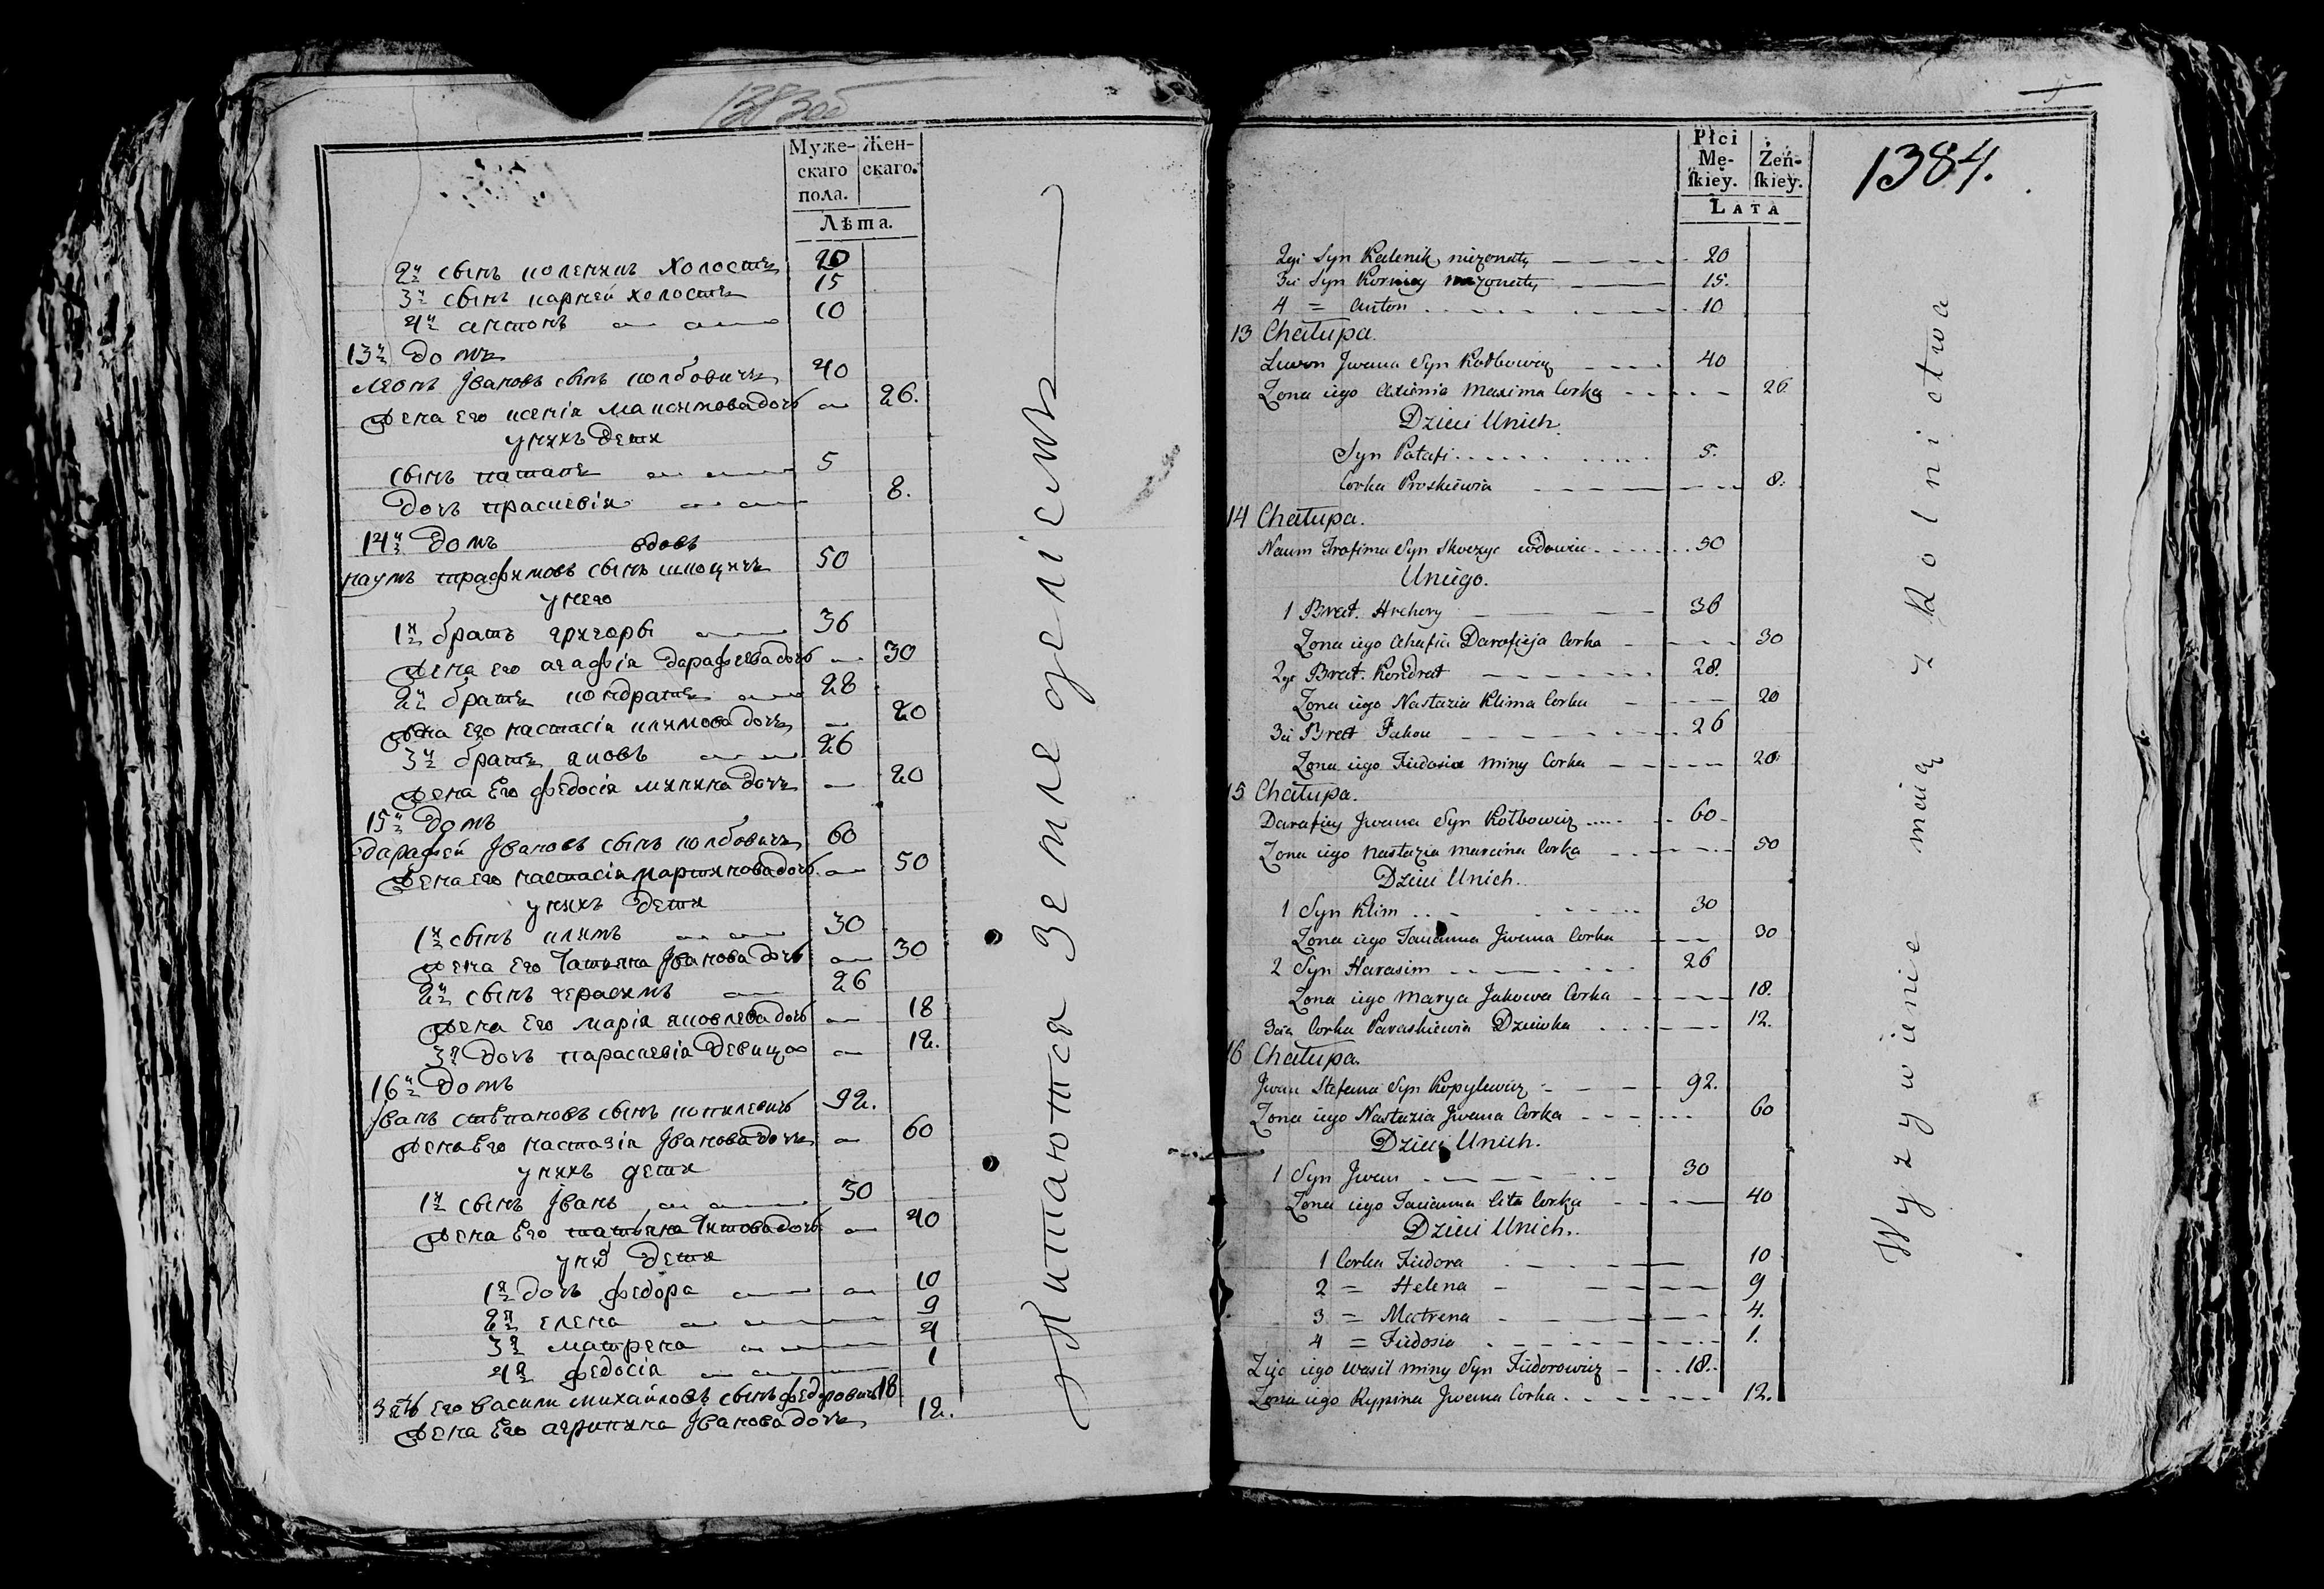 1383об
Муже- Жен-
скаго скаго.
пола.
Лѣта.
2й сынъ коленикъ холостъ 20
3й сынъ карней холостъ 15
4й антонъ 10
13й домъ
леонъ Iвановъ сынъ колбовичъ 40
жена его ксенiя максимова дочь 26.
у нихъ дети
сынъ паталъ 5
дочь праскевiя 8.
14й домъ вдовъ
наумъ трафимовъ сынъ 50
у него
1й братъ григоры 36
жена его агафiя дарафеева дочь 30
2й братъ кондратъ 28
жена его настасiя климова дочь 20
3й братъ яковъ 26
жена Его федосiя минина дочь 20
15й домъ
дарафей Iвановъ сынъ колбовичъ 60
жена его настасiя мартинова дочь 50
у нихъ дети
1й сынъ климъ 30
жена Его Татьяна Iванова дочь 30
2й сынъ герасимъ 26
жена Его марiя яковлева дочь 18
3я дочь параскевiя девица 12.
16й домъ
Iванъ стѣпановъ сынъ копилевичъ 92.
жена Его настазiя Iванова дочь 60
у нихъ дети
1й сынъ Iванъ 30
жена Его татьяна Титова дочь 40
у нiхъ дети
1я дочь федора 10
2я елена 9
3я матрена 4
4я федосiя 1
Зять Его васили михайловъ сынъ федоровичъ 18
жена Его агрипина Iванова дочь 12.
Питаются Земледелiемъ
1384.
Płci
Mę- Żeń-
ſkiey. ſkiey.
LATA
2gi Syn Kalenik niezonaty 20
3ci Syn Korniey niezonaty 15.
4 = Anton 10
13 Chałupa.
Lewon Jwana Syn Kołbowicz 40
Zona iego Axienia Maxima Corka 26
Dzieci Unich
Syn Patapi 5.
Corka Proskiewia 8.
14 Chałupa.
Naum Trofima Syn Skoczyc wdowiec 50
Uniego.
1 Brat. Hrehory 36
Zona iego Ahafia Darafieja Corka 30
2gi Brat. Kondrat 28.
Zona iego Nastazia Klima Corka 20
3ci Brat Jakow 26
Zona iego Fiedosia Miny Corka 20
15 Chałupa.
Darafiey Jwana Syn Kołbowicz 60
Zona iego Nastazia Marcina Corka 50
Dzieci Unich.
1 Syn Klim 30
Zona iego Tacianna Jwana Corka 30
2 Syn Harasim 26
Zona iego Marya Jakowa Corka 18.
3cia Corka Paraskiewia Dziewka 12.
16 Chałupa.
Jwan Stefana Syn Kopylewicz 92.
Zona iego Nastazia Jwana Corka 60
Dzieci Unich.
1 Syn Jwan 30
Zona iego Tacianna Cita Corka 40
Dzieci Unich.
1 Corka Fiedora 10
2 = Helena 9
3 = Matrena 4.
4 = Fiedosia 1.
Zięc iego Wasil Miny Syn Fiedorowicz 18.
Zona iego Kypina Jwana Corka 12.
Wyzywienie maią z Rolnictwa